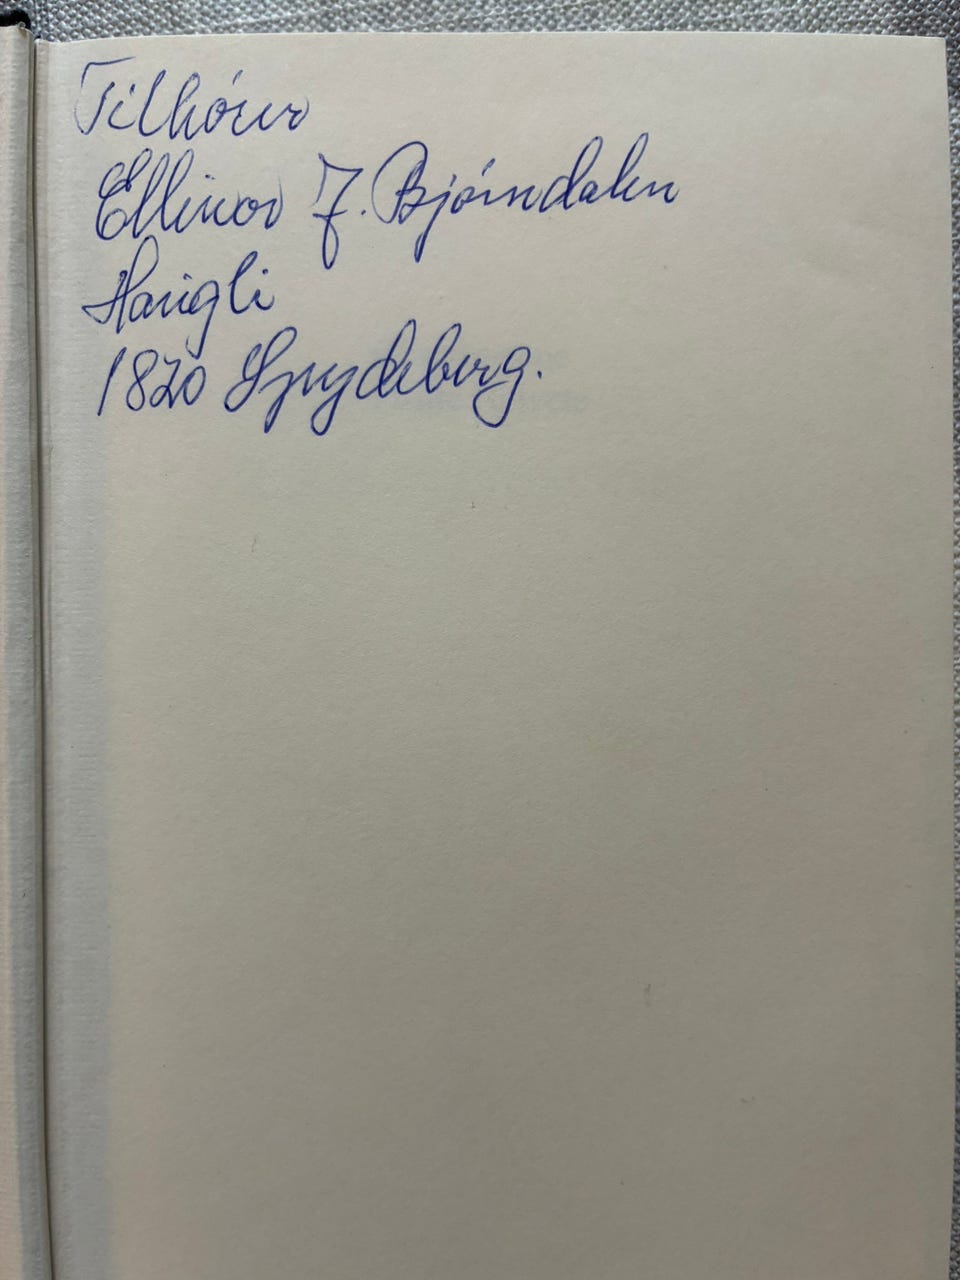 Tilhórer
Ellinor F. Bjórndalen
Haugli
1820 Spydeberg.